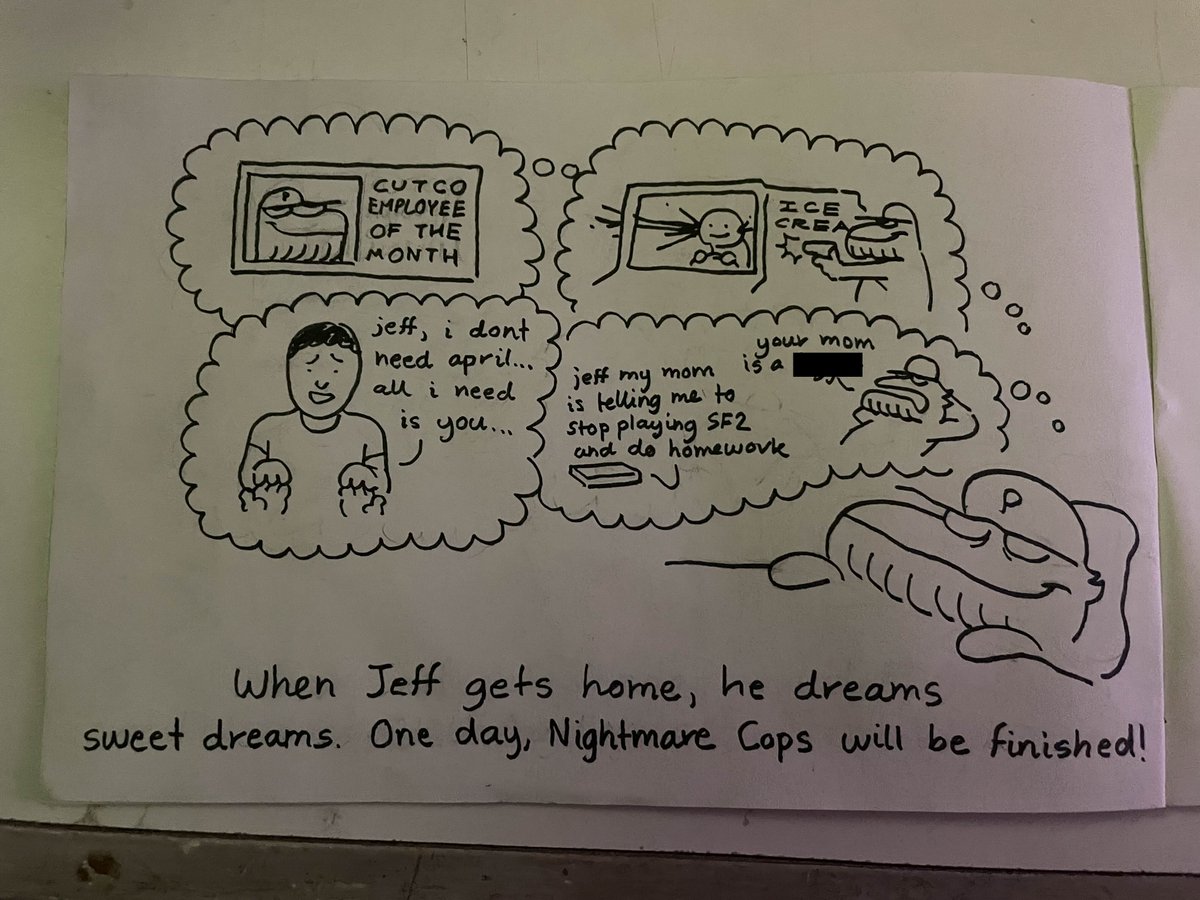 CUTCO
EMPLOYEE
OF THE
MONTH
P
ICE
CREA
jeff, i dont
need april...
all i need
is you...
jeff my mom
is telling me to
stop playing SF2
and do homework
your mom
is a
P
When Jeff gets home, he dreams
sweet dreams. One day, Nightmare Cops will be finished!